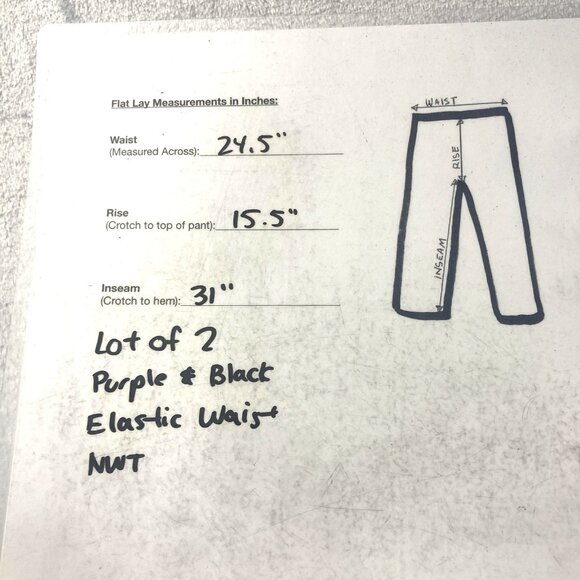 Flat Lay Measurements in Inches:
WAIST
Waist
(Measured Across): 24.5"
RISE
Rise
(Crotch to top of pant): 15.5"
INSEAM
Inseam
(Crotch to hem): 31"
Lot of 2
Purple & Black
Elastic Waist
NWT